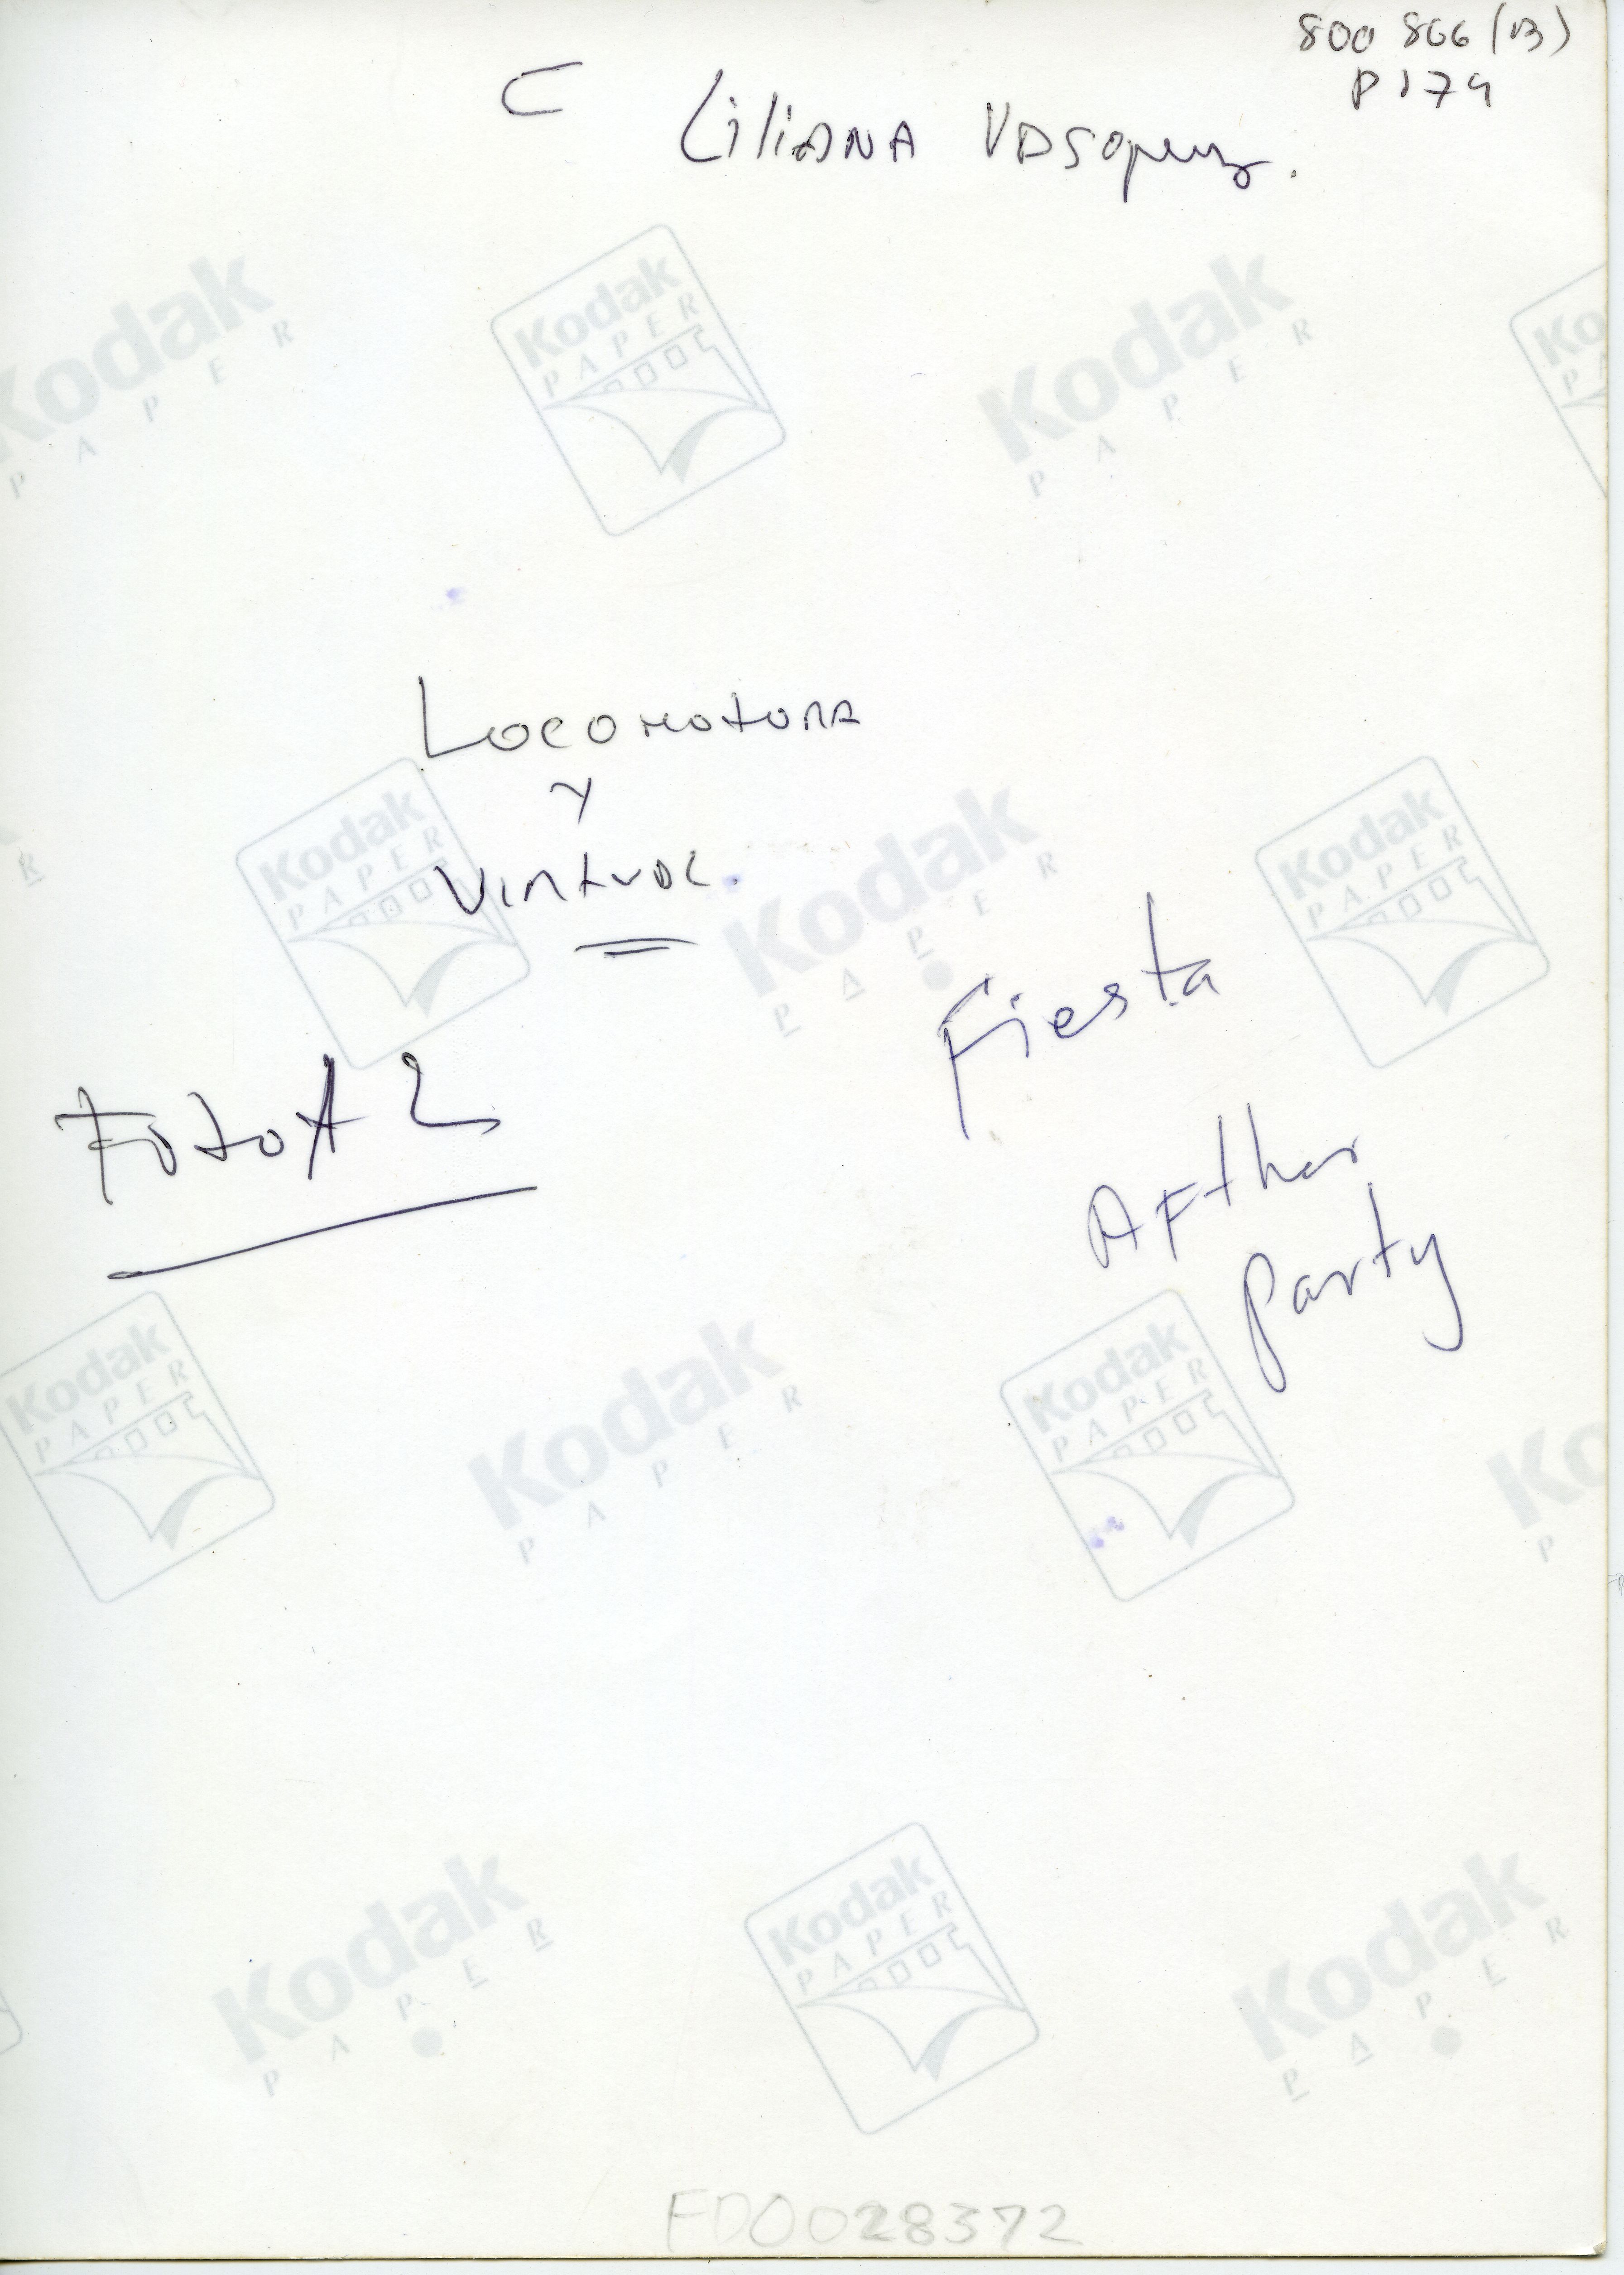 800 866 (13)
P 174
C Liliana Vasquez.
Locomotora
y
Virtual.
Fiesta
Foto
Afther
Party
Kodak
PAPER
FD0028372